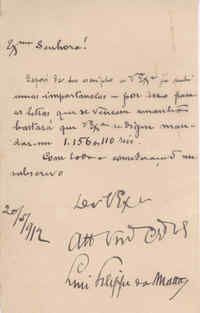 Exma Senhora!
Depois de ter escripto a V Exa já recebi
umas importancias — por isso para
as letras que se vencem amanhã
bastará que V Exa se digne man-
dar-me 1.156$110 reis.
Com toda a consideração me
subscrevo
De V Exa
20/5/912
Luiz Filippe da Matta